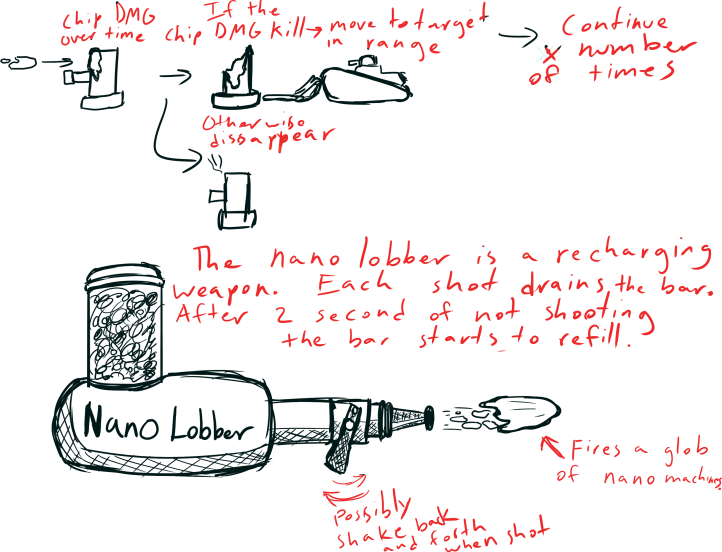 chip DMG
over time
If the
chip DMG kill → move to target
in range
Continue
X number
of times
Otherwise
dissappear
The nano lobber is a recharging
weapon. Each shot drains the bar.
After 2 second of not shooting
the bar starts to refill.
Nano Lobber
Fires a glob
of nano machines
Possibly
shake back
and forth
when shot